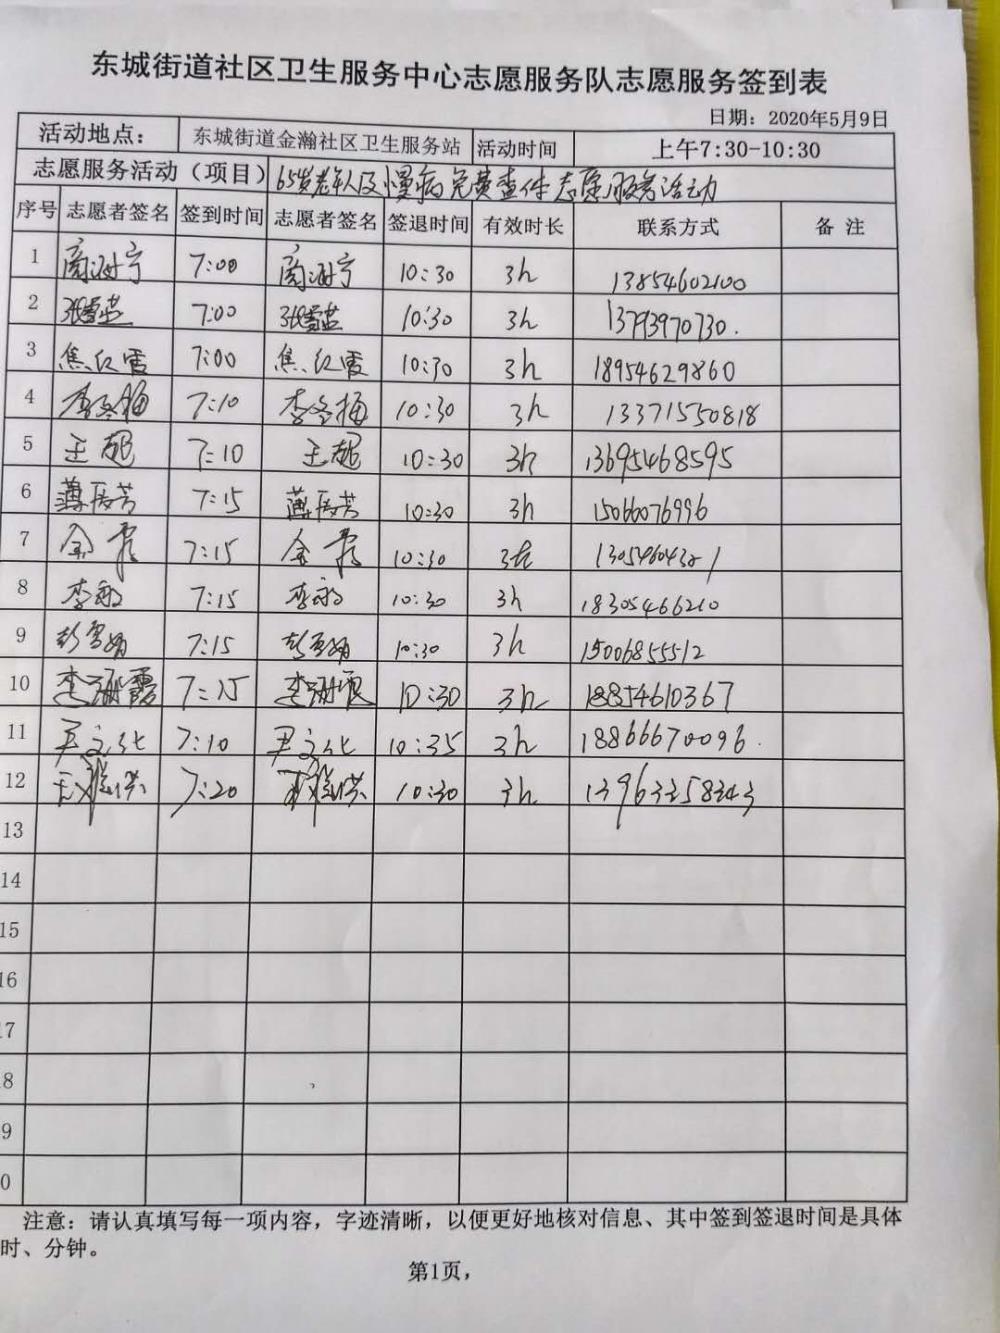 东城街道社区卫生服务中心志愿服务队志愿服务签到表
日期：2020年5月9日
活动地点： 东城街道金瀚社区卫生服务站 活动时间 上午7:30-10:30
志愿服务活动（项目） 65岁老年人及慢病免费查体志愿服务活动
序号 志愿者签名 签到时间 志愿者签名 签退时间 有效时长 联系方式 备 注
1 7:00 10:30 3h 13854602100
2 7:00 10:30 3h 13793970730.
3 焦红霞 7:00 焦红霞 10:30 3h 18954629860
4 李冬梅 7:10 李冬梅 10:30 3h 13371550818
5 王超 7:10 王超 10:30 3h 13695468595
6 薄 芳 7:15 薄 芳 10:30 3h 15066076996
7 金 7:15 金 10:30
8 李 7:15 李 10:30 3h 18305466210
9 彭雪娟 7:15 彭雪娟 10:30 3h 15006855512
10 李 霞 7:15 李 10:30 3h 18854610367
11 尹文化 7:10 尹文化 10:35 3h 18866670096.
12 7:20 10:30 3h 13963358343
13
14
15
16
17
8
9
0
注意：请认真填写每一项内容，字迹清晰，以便更好地核对信息、其中签到签退时间是具体
时、分钟。
第1页，